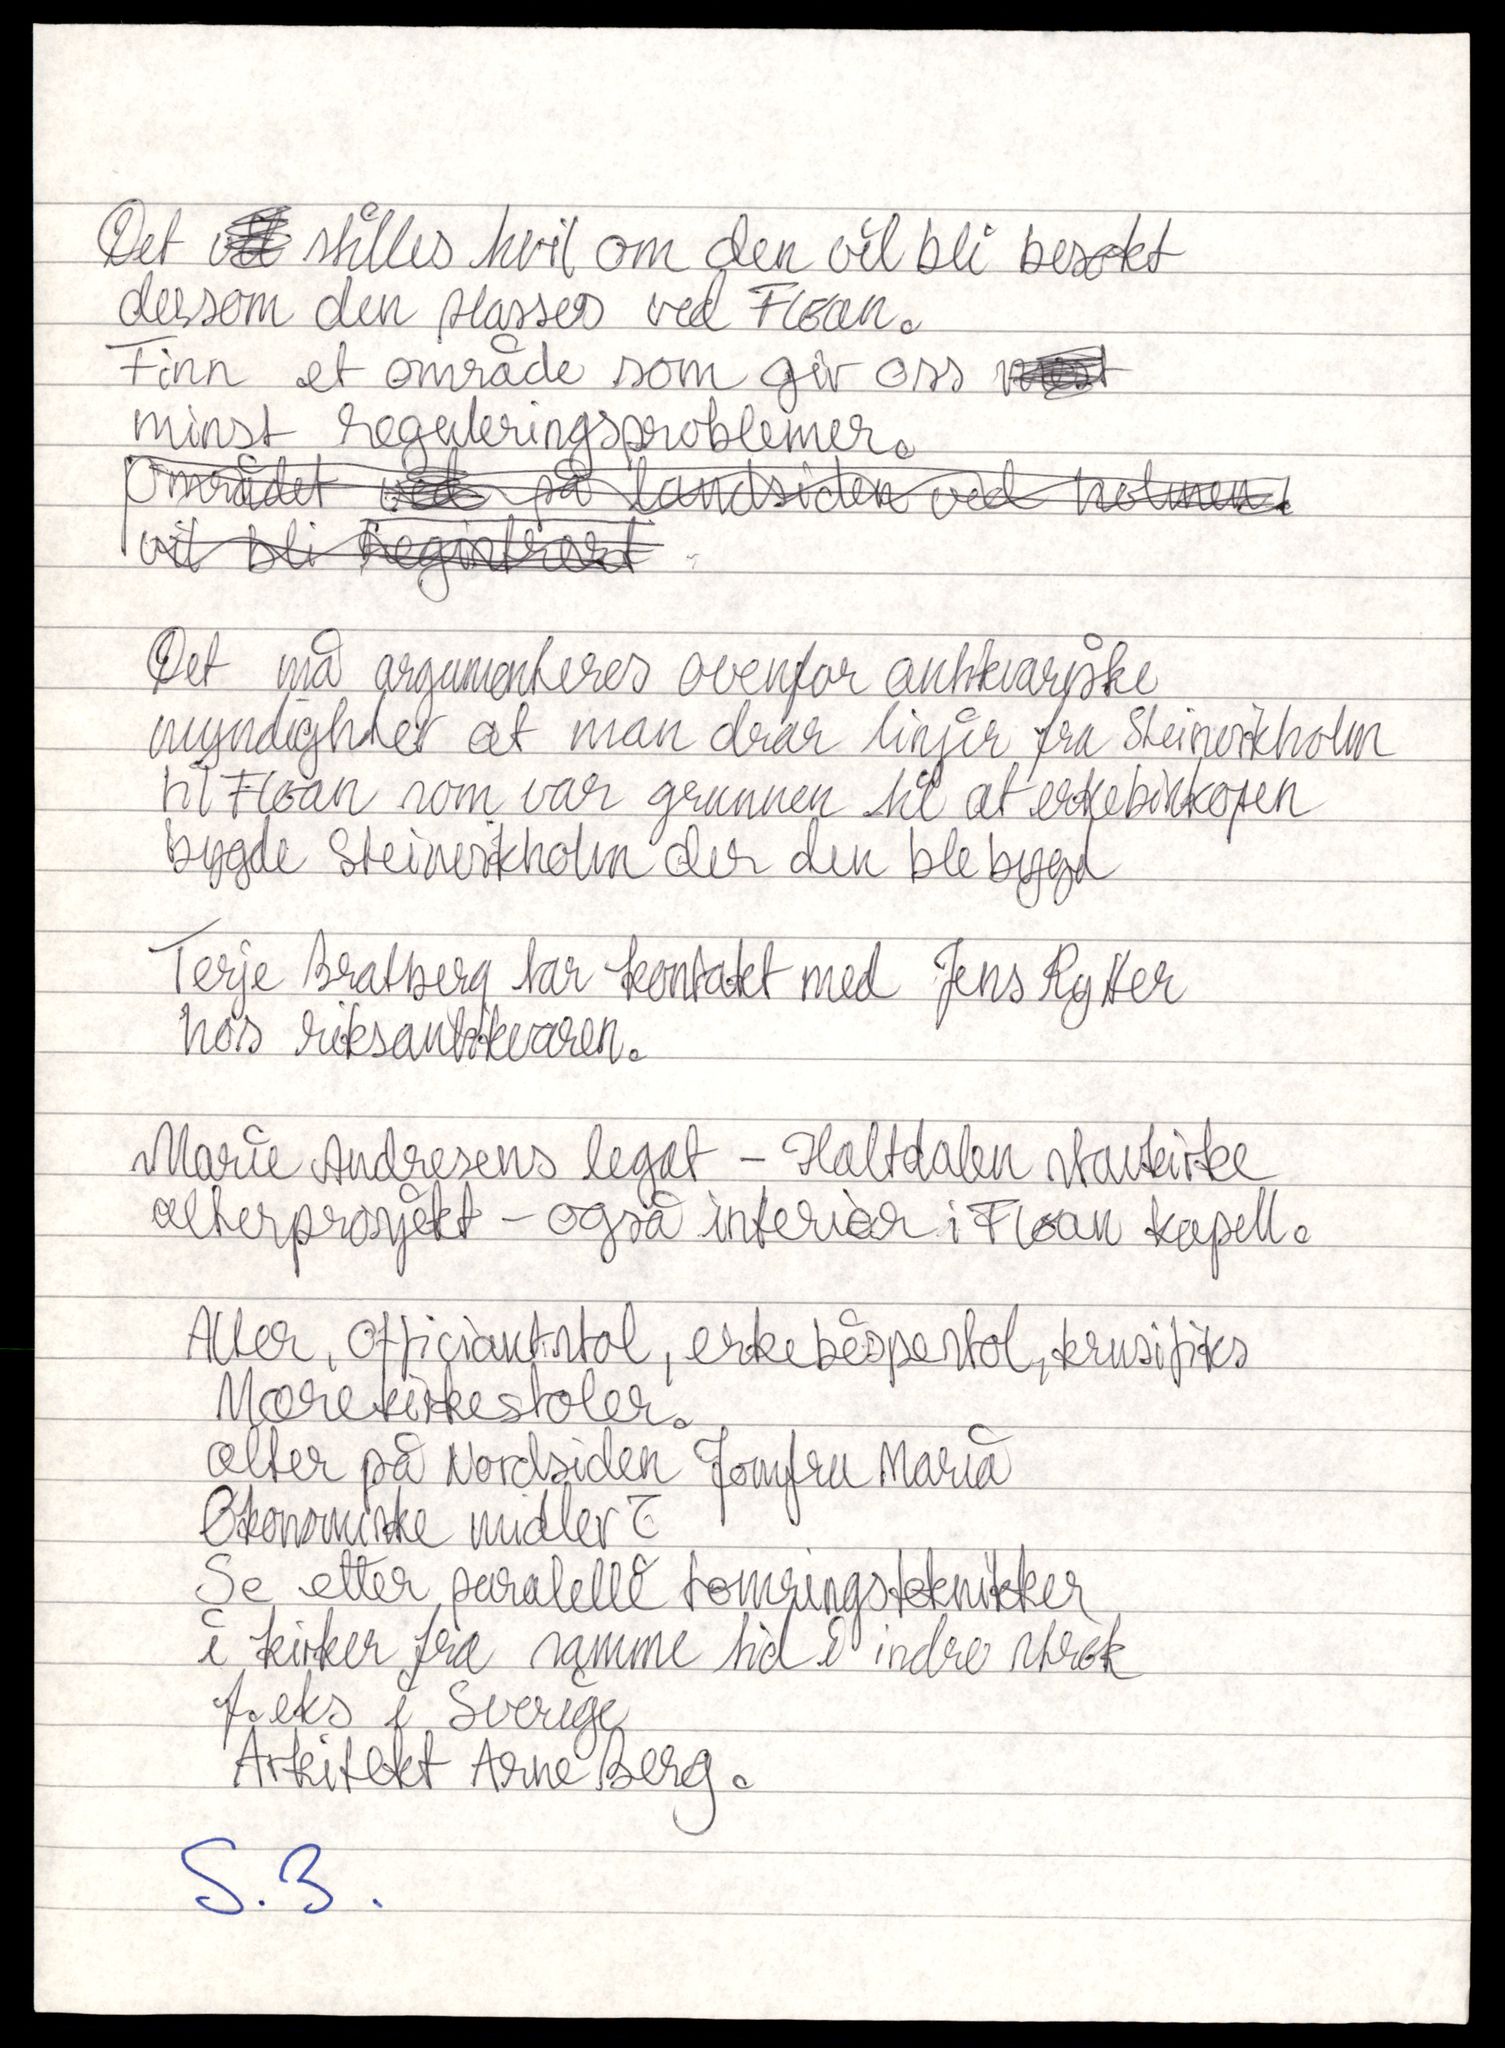 Det stilles tvil om den vil bli besøkt
dersom den plasses ved Fløan.
Finn et område som gir oss
minst reguleringsproblemer.
Området ved på landsiden ved holmen.
vil bli registrert
Det må argumenteres ovenfor antikvariske
myndigheter at man drar linjer fra Steinvikholm
til Fløan som var grunnen til at erkebiskopen
bygde Steinvikholm der den ble bygd
Terje Bratberg tar kontakt med Jens Rytter
hos riksantikvaren.
Marie Andresens legat – Haltdalen stavkirke
alterprosjekt – også interiør i Fløan kapell.
Alter, Officiantstol, erkebispestol, krusifiks
Mære kirkestoler.
alter på Nordsiden Jomfru Maria
Økonomiske midler?
Se etter paralelle tømringsteknikker
i kirker fra samme tid i indre strøk
f.eks i Sverige
Arkitekt Arne Berg.
S.B.